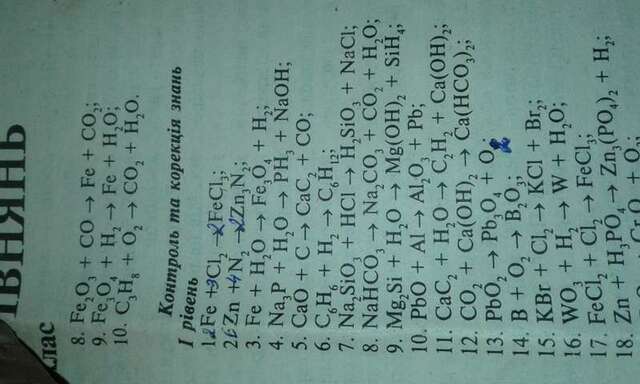 ІВНЯНЬ
клас
8. Fe₂O₃ + CO → Fe + CO₂;
9. Fe₃O₄ + H₂ → Fe + H₂O;
10. C₃H₈ + O₂ → CO₂ + H₂O.
Контроль та корекція знань
І рівень
1. 2Fe + 3Cl₂ → 2FeCl₃;
2. 6Zn + 4N₂ → 2Zn₃N₂;
3. Fe + H₂O → Fe₃O₄ + H₂;
4. Na₃P + H₂O → PH₃ + NaOH;
5. CaO + C → CaC₂ + CO;
6. C₆H₆ + H₂ → C₆H₁₂;
7. Na₂SiO₃ + HCl → H₂SiO₃ + NaCl;
8. NaHCO₃ → Na₂CO₃ + CO₂ + H₂O;
9. Mg₂Si + H₂O → Mg(OH)₂ + SiH₄;
10. PbO + Al → Al₂O₃ + Pb;
11. CaC₂ + H₂O → C₂H₂ + Ca(OH)₂;
12. CO₂ + Ca(OH)₂ → Ca(HCO₃)₂;
13. PbO₂ → Pb₃O₄ + O₂
14. B + O₂ → B₂O₃;
15. KBr + Cl₂ → KCl + Br₂;
16. WO₃ + H₂ → W + H₂O;
17. FeCl₂ + Cl₂ → FeCl₃;
18. Zn + H₃PO₄ → Zn₃(PO₄)₂ + H₂;